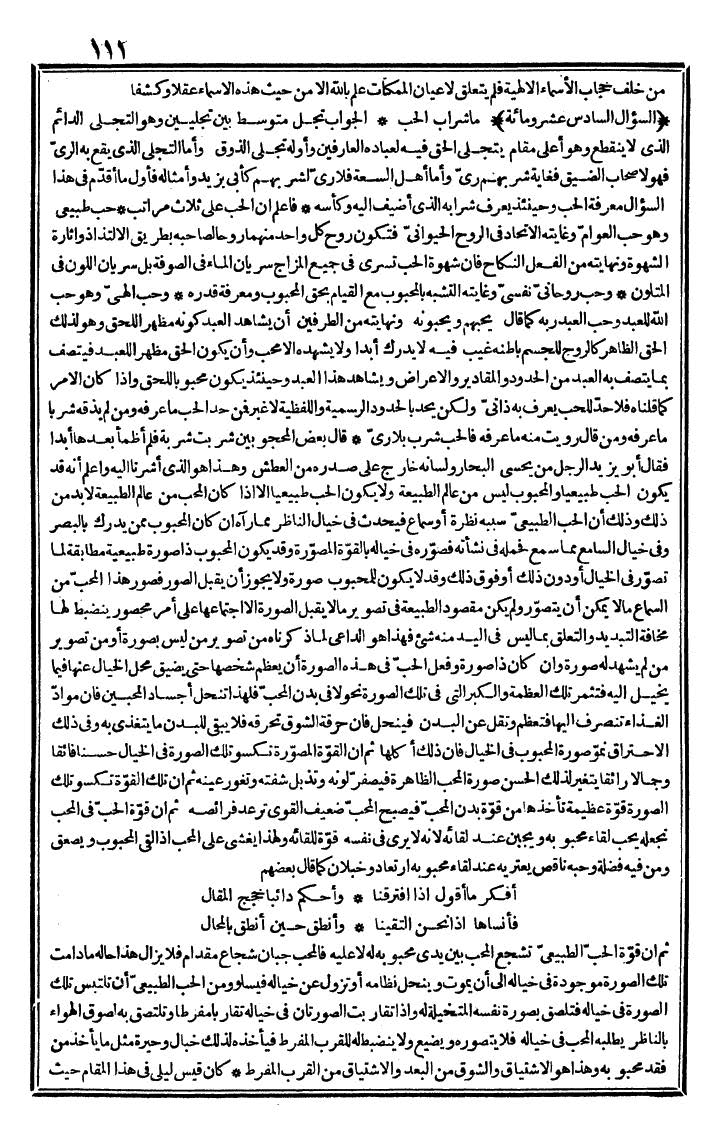 ١١٢
من خلف حجاب الأسماء الالهية فلم يتعلق لاعيان الممكنات علم بالله الا من حيث هذه الاسماء عقلا وكشفا
﴿السؤال السادس عشر ومائة﴾ ما شراب الحب * الجواب تجل متوسط بين تجليين وهو التجلى الدائم
الذى لا ينقطع وهو أعلى مقام يتجلى الحق فيه لعباده العارفين وأوله تجلى الذوق وأما التجلى الذى يقع به الرىّ
فهو لاصحاب الضيق فغاية شربهم رىّ وأما أهل السعة فلا رىّ لشربهم كأبى يزيد وأمثاله فأول ما أقدّم فى هذا
السؤال معرفة الحب وحينئذ يعرف شرابه الذى أضيف اليه وكأسه * فاعلم ان الحب على ثلاث مراتب * حب طبيعى
وهو حب العوامّ وغايته الاتحاد فى الروح الحيوانىّ فتكون روح كل واحد منهما روحا لصاحبه بطريق الالتذاذ واثارة
الشهوة ونهايته من الفعل النكاح فان شهوة الحب تسرى فى جميع المزاج سريان الماء فى الصوفة بل سريان اللون فى
المتلون * وحب روحانىّ نفسىّ وغايته التشبه بالمحبوب مع القيام بحق المحبوب ومعرفة قدره * وحب الهىّ وهو حب
الله للعبد وحب العبد ربه كما قال يحبهم ويحبونه ونهايته من الطرفين أن يشاهد العبد كونه مظهر اللحق وهو لذلك
الحق الظاهر كالروح للجسم باطنه غيب فيه لا يدرك أبدا ولا يشهده الا محب وأن يكون الحق مظهر اللعبد فيتصف
بما يتصف به العبد من الحدود والمقادير والاعراض ويشاهد هذا العبد وحينئذ يكون محبوبا للحق واذا كان الامر
كما قلناه فلا حدّ للحب يعرف به ذاتىّ ولكن يحد بالحدود الرسمية واللفظية لا غير فمن حد الحب ما عرفه ومن لم يذقه شربا
ما عرفه ومن قال رويت منه ما عرفه فالحب شرب بلا رىّ * قال بعض المحجوبين شربت شربة فلم أظمأ بعدها أبدا
فقال أبو يزيد الرجل من يحسى البحار ولسانه خارج على صدره من العطش وهذا هو الذى أشرنا اليه واعلم أنه قد
يكون الحب طبيعيا والمحبوب ليس من عالم الطبيعة ولا يكون الحب طبيعيا الا اذا كان المحب من عالم الطبيعة لا بد من
ذلك وذلك أن الحب الطبيعىّ سببه نظرة أو سماع فيحدث فى خيال الناظر مما رآه ان كان المحبوب ممن يدرك بالبصر
وفى خيال السامع مما سمع فحمله فى نشأته فصوّره فى خياله بالقوّة المصوّرة وقد يكون المحبوب ذا صورة طبيعية مطابقة لما
تصوّر فى الخيال أو دون ذلك أو فوق ذلك وقد لا يكون للمحبوب صورة ولا يجوز أن يقبل الصور فصور هذا المحبّ من
السماع ما لا يمكن أن يتصوّر ولم يكن مقصود الطبيعة فى تصوير ما لا يقبل الصورة الا اجتماعها على أمر محصور ينضبط لها
مخافة التبديد والتعلق بما ليس فى اليد منه شئ فهذا هو الداعى لما ذكرناه من تصوير من ليس بصورة أو من تصوير
من لم يشهد له صورة وان كان ذا صورة وفعل الحبّ فى هذه الصورة أن يعظم شخصها حتى يضيق محل الخيال عنها فيما
يخيل اليه فتثمر تلك العظمة والكبر التى فى تلك الصورة نحولا فى بدن المحبّ فلهذا تنحل أجساد المحبين فان موادّ
الغذاء تنصرف اليها فتعظم وتقل عن البدن فينحل فان حرقة الشوق تحرقه فلا يبقى للبدن ما يتغذى به وفى ذلك
الاحتراق نموّ صورة المحبوب فى الخيال فان ذلك أكلها ثم ان القوّة المصوّرة تكسو تلك الصورة فى الخيال حسنا فائقا
وجمالا رائقا يتغير لذلك الحسن صورة المحب الظاهرة فيصفرّ لونه وتذبل شفته وتغور عينه ثم ان تلك القوّة تكسو تلك
الصورة قوّة عظيمة تأخذها من قوّة بدن المحبّ فيصبح المحبّ ضعيف القوى ترعد فرائصه ثم ان قوّة الحبّ فى المحب
تجعله يحب لقاء محبوبه ويجبن عند لقائه لانه لا يرى فى نفسه قوّة للقائه ولهذا يغشى على المحب اذا لقى المحبوب ويصعق
ومن فيه فضلة وحبه ناقص يعتريه عند لقاء محبوبه ارتعاد وخبلان كما قال بعضهم
أفكر ما أقول اذا افترقنا * وأحكم دائبا حجج المقال
فأنساها اذا نحن التقينا * وأنطق حين أنطق بالمحال
ثم ان قوّة الحبّ الطبيعىّ تشجع المحب بين يدى محبوبه له لا عليه فالمحب جبان شجاع مقدام فلا يزال هذا حاله ما دامت
تلك الصورة موجودة فى خياله الى أن يموت وينحل نظامه أو تزول عن خياله فيسلو ومن الحب الطبيعىّ أن تلتبس تلك
الصورة فى خياله فتلصق بصورة نفسه المتخيلة له واذا تقاربت الصورتان فى خياله تقاربا مفرطا وتلتصق به لصوق الهواء
بالناظر يطلبه المحب فى خياله فلا يتصوره ويضيع ولا ينضبط له للقرب المفرط فيأخذه لذلك خبال وحيرة مثل ما يأخذ من
فقد محبوبه وهذا هو الاشتياق والشوق من البعد والاشتياق من القرب المفرط * كان قيس ليلى فى هذا المقام حيث